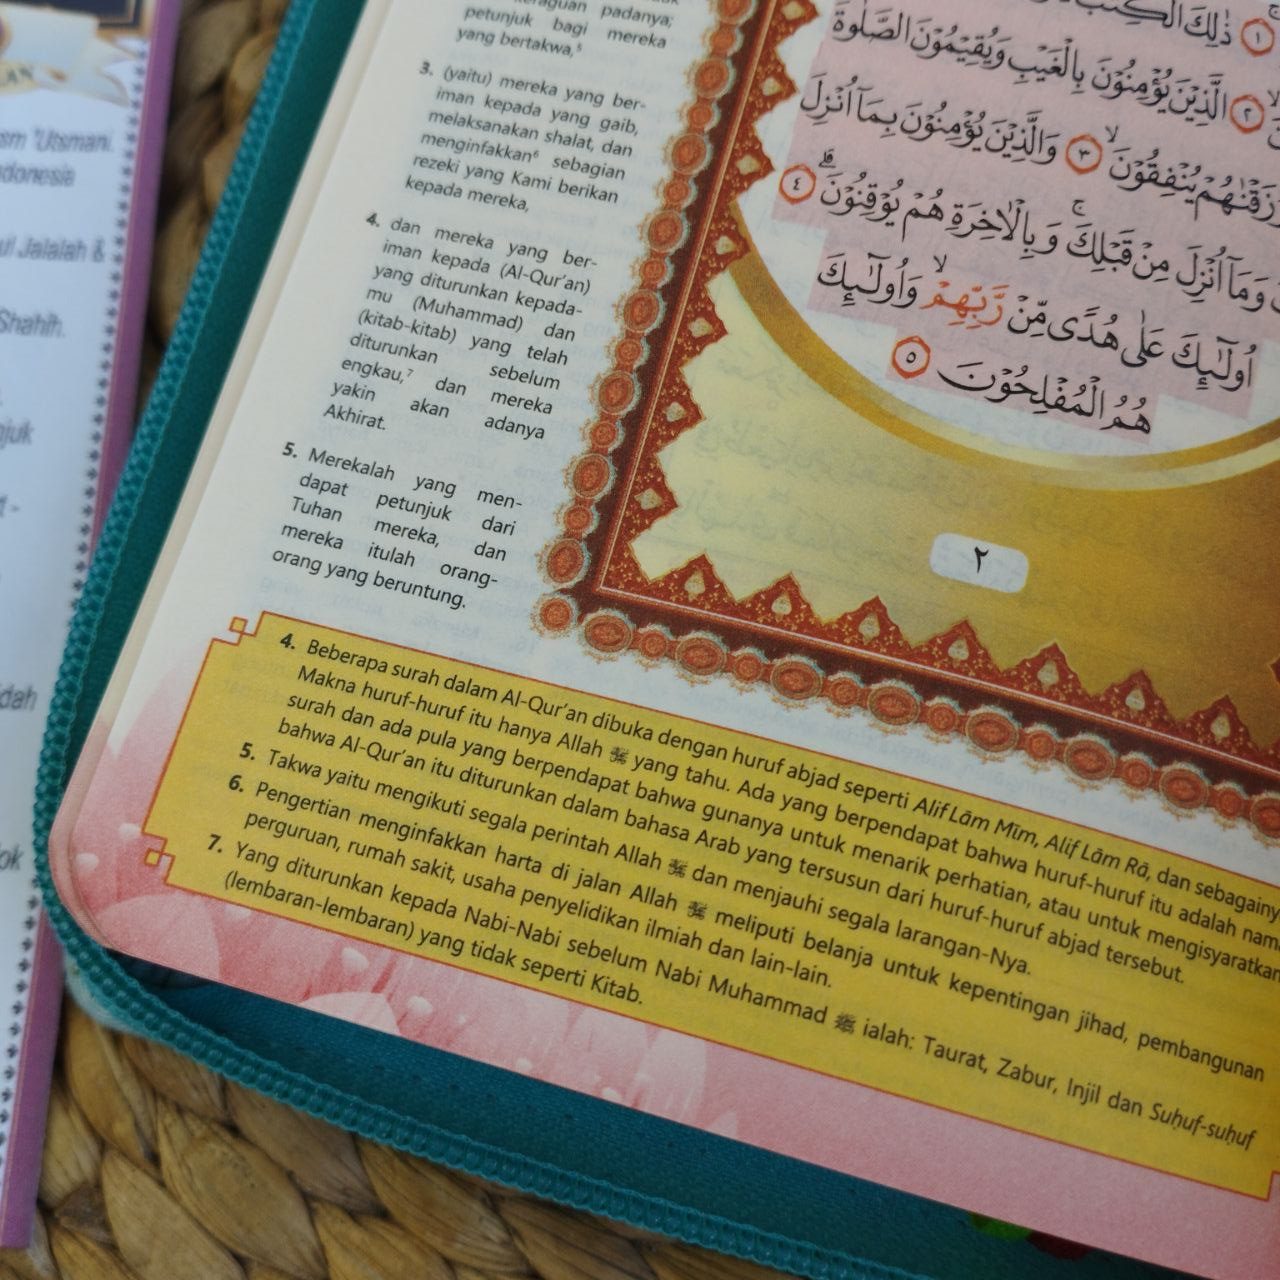 petunjuk bagi mereka
yang bertakwa,⁵
3. (yaitu) mereka yang ber-
iman kepada yang gaib,
melaksanakan shalat, dan
menginfakkan⁶ sebagian
rezeki yang Kami berikan
kepada mereka,
4. dan mereka yang ber-
iman kepada (Al-Qur'an)
yang diturunkan kepada-
mu (Muhammad) dan
(kitab-kitab) yang telah
diturunkan sebelum
engkau,⁷ dan mereka
yakin akan adanya
Akhirat.
5. Merekalah yang men-
dapat petunjuk dari
Tuhan mereka, dan
mereka itulah orang-
orang yang beruntung.
١ ذٰلِكَ الْكِتٰبُ
٢ الَّذِيْنَ يُؤْمِنُوْنَ بِالْغَيْبِ وَيُقِيْمُوْنَ الصَّلٰوةَ
رَزَقْنٰهُمْ يُنْفِقُوْنَۙ ٣ وَالَّذِيْنَ يُؤْمِنُوْنَ بِمَآ اُنْزِلَ
وَمَآ اُنْزِلَ مِنْ قَبْلِكَۚ وَبِالْاٰخِرَةِ هُمْ يُوْقِنُوْنَۗ ٤
اُولٰۤىِٕكَ عَلٰى هُدًى مِّنْ رَّبِّهِمْۙ وَاُولٰۤىِٕكَ
هُمُ الْمُفْلِحُوْنَ ٥
٢
4. Beberapa surah dalam Al-Qur'an dibuka dengan huruf abjad seperti Alif Lām Mīm, Alif Lām Rā, dan sebagainya
Makna huruf-huruf itu hanya Allah ﷻ yang tahu. Ada yang berpendapat bahwa huruf-huruf itu adalah nama
surah dan ada pula yang berpendapat bahwa gunanya untuk menarik perhatian, atau untuk mengisyaratkan
bahwa Al-Qur'an itu diturunkan dalam bahasa Arab yang tersusun dari huruf-huruf abjad tersebut.
5. Takwa yaitu mengikuti segala perintah Allah ﷻ dan menjauhi segala larangan-Nya.
6. Pengertian menginfakkan harta di jalan Allah ﷻ meliputi belanja untuk kepentingan jihad, pembangunan
perguruan, rumah sakit, usaha penyelidikan ilmiah dan lain-lain.
7. Yang diturunkan kepada Nabi-Nabi sebelum Nabi Muhammad ﷺ ialah: Taurat, Zabur, Injil dan Suḥuf-suḥuf
(lembaran-lembaran) yang tidak seperti Kitab.
'Utsmani.
Jalalah &
Shahih.